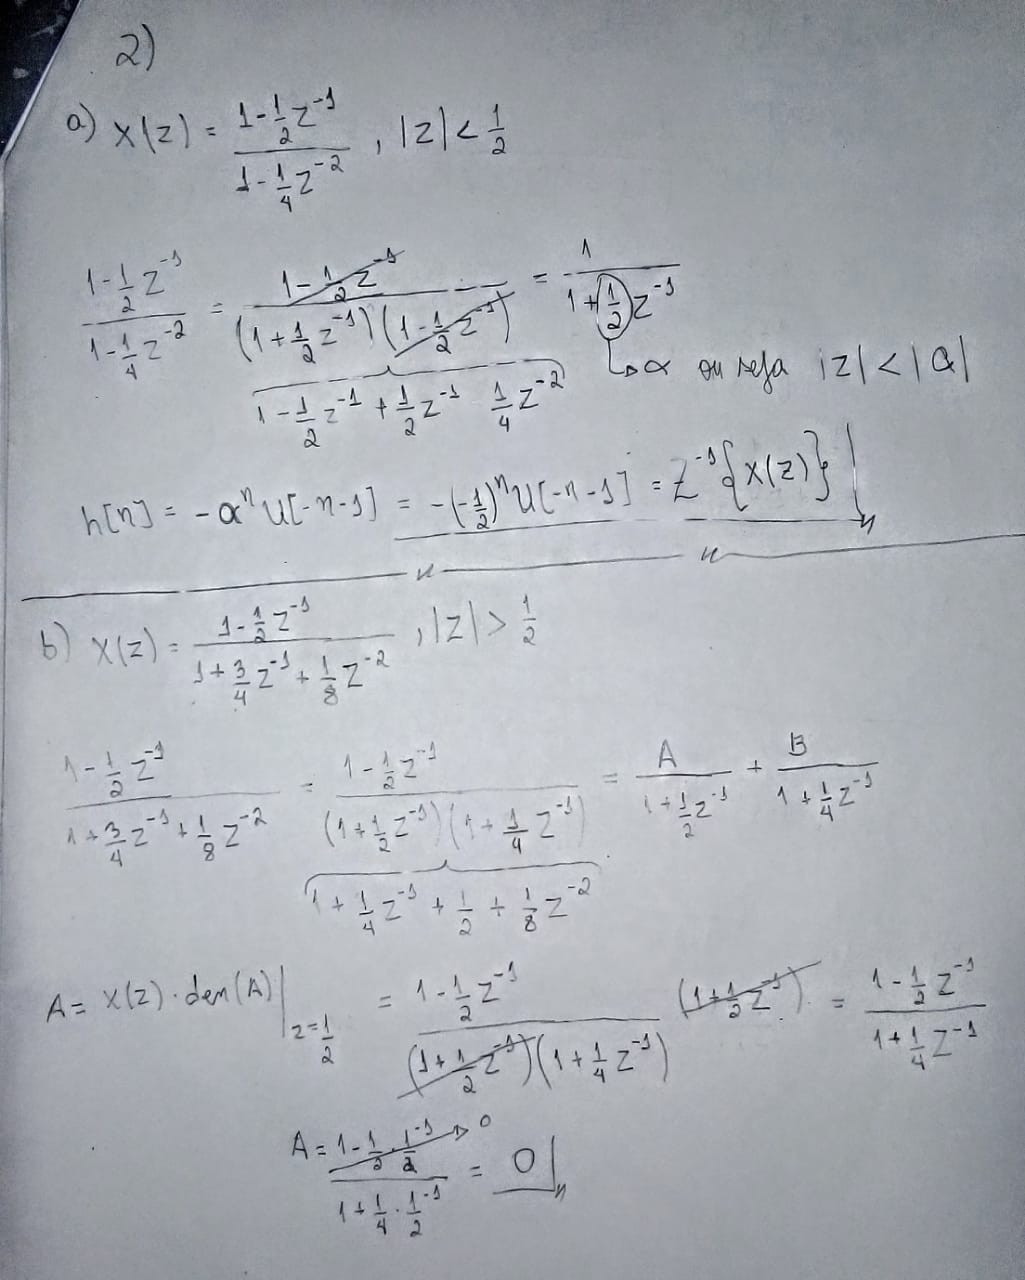 2)
a) X(z) = (1 - 1/2 z^-1)/(1 - 1/4 z^-2) , |z| < 1/2
(1 - 1/2 z^-1)/(1 - 1/4 z^-2) = (1 - 1/2 z^-1)/((1 + 1/2 z^-1)(1 - 1/2 z^-1)) = 1/(1 + 1/2 z^-1)
1 - 1/2 z^-1 + 1/2 z^-1 1/4 z^-2
↳ α ou seja |z| < |a|
h[n] = -α^n u[-n-1] = -(-1/2)^n u[-n-1] = Z^-1{X(z)}
b) X(z) = (1 - 1/2 z^-1)/(1 + 3/4 z^-1 + 1/8 z^-2) , |z| > 1/2
(1 - 1/2 z^-1)/(1 + 3/4 z^-1 + 1/8 z^-2) = (1 - 1/2 z^-1)/((1 + 1/2 z^-1)(1 + 1/4 z^-1)) = A/(1 + 1/2 z^-1) + B/(1 + 1/4 z^-1)
1 + 1/4 z^-1 + 1/2 + 1/8 z^-2
A = X(z) · den(A)|z=1/2 = (1 - 1/2 z^-1)/((1 + 1/2 z^-1)(1 + 1/4 z^-1)) (1 + 1/2 z^-1) · = (1 - 1/2 z^-1)/(1 + 1/4 z^-1)
A = (1 - 1/2 · 1/2^-1 → 0)/(1 + 1/4 · 1/2^-1) = 0